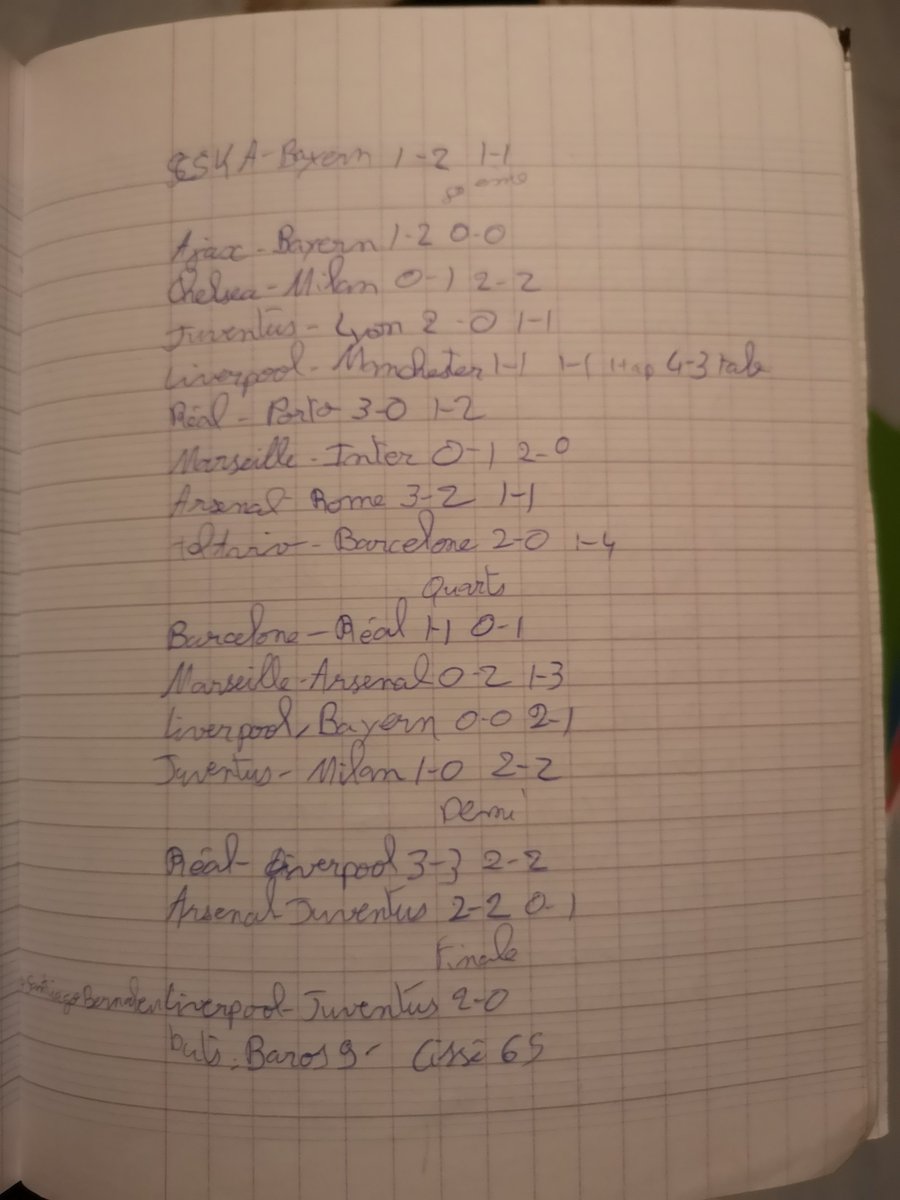 CSKA-Bayern 1-2 1-1
8 eme
Ajax-Bayern 1-2 0-0
Chelsea-Milan 0-1 2-2
Juventus-Lyon 2-0 1-1
Liverpool-Mmchester 1-1 1-1 4-3 tab
Réal-Porto 3-0 1-2
Marseille-Inter 0-1 2-0
Arsenal-Rome 3-2 1-1
-Barcelone 2-0 1-4
Quarts
Barcelone-Réal 1-1 0-1
Marseille-Arsenal 0-2 1-3
Liverpool-Bayern 0-0 2-1
Juventus-Milan 1-0 2-2
Demi
Réal-Liverpool 3-3 2-2
Arsenal-Juventus 2-2 0-1
Finale
Santiago Bernabeu Liverpool-Juventus 2-0
buts: Baros 9- Cissé 65